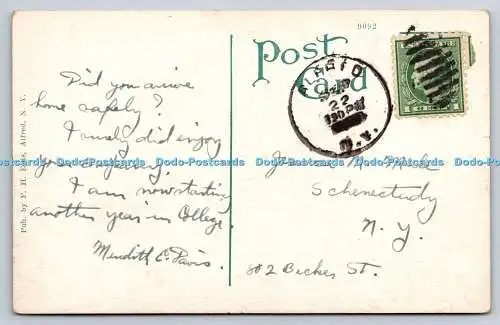 9092
Post Card
22
N.Y.
Did you arrive
home safely?
I surely did enjoy
your
I am now starting
another year in College.
Meredith E. Davis.
Schenectady
N.Y.
802 Becker St.
Pub. by F. H. Ellis, Alfred, N. Y.
Dodo-Postcards Dodo-Postcards Dodo-Postcards Dodo-Postcards Dodo-Postcards Dodo-Postcards